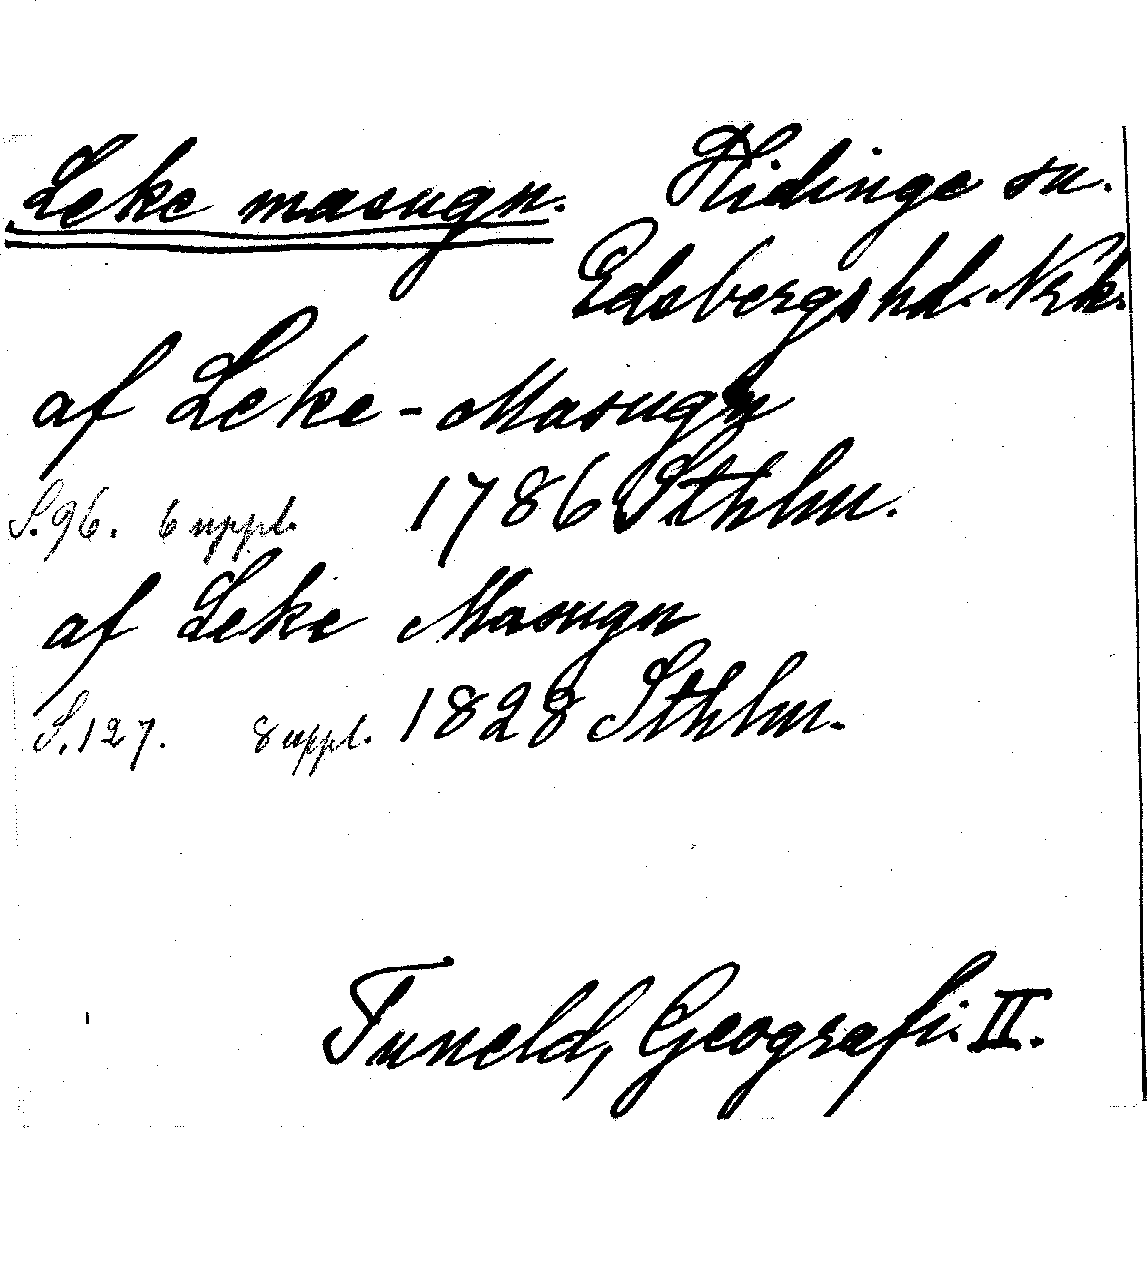 Leke masugn. Hidinge sn.
Edsbergs hd. Nrk.
af Leke-Masugn
S.96. 6 uppl. 1786 Sthlm.
af Leke Masugn
S.127. 8 uppl. 1828 Sthlm.
Tuneld, Geografi. II.